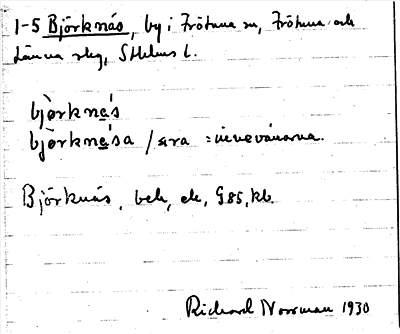 1-5 Björknäs, by i Frötuna sn, Frötuna och
Länna skg, Sthlms l.
björknäs
björknäsa /ara =
Björknäs, beb, ek, G85, kb.
Richard Norrman 1930